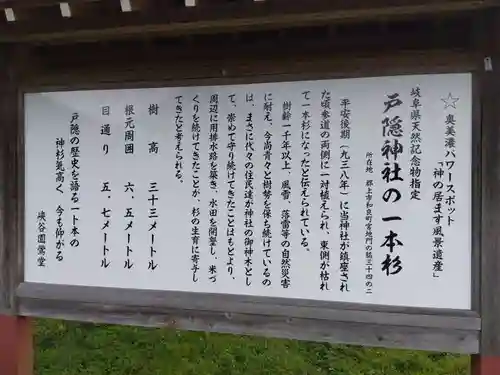 ☆ 奥美濃パワースポット
「神の居ます風景遺産」
岐阜県天然記念物指定
戸隠神社の一本杉
所在地 郡上市和良町宮地門の脇三十四の二
平安後期(九三八年)に当神社が鎮座され
た頃参道の両側に一対植えられ、東側が枯れ
て一本杉になったと伝えられている。
樹齢一千年以上、風雪、落雷等の自然災害
に耐え、今尚青々と樹勢を保ち続けているの
は、まさに代々の住民達が神社の御神木とし
て、崇めて守り続けてきたことはもとより、
周辺に用排水路を築き、水田を開墾し、米づ
くりを続けてきたことが、杉の生育に寄与し
てきたと考えられる。
樹 高 三十三メートル
根元周囲 六.五メートル
目通り 五.七メートル
戸隠の歴史を語る一ト本の
神杉気高く、今も仰がる
峡谷園鶯堂